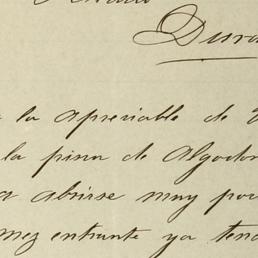 Dura
la apreciable de
la pisca de Algodon
abrirse muy po
mez entrante ya tend